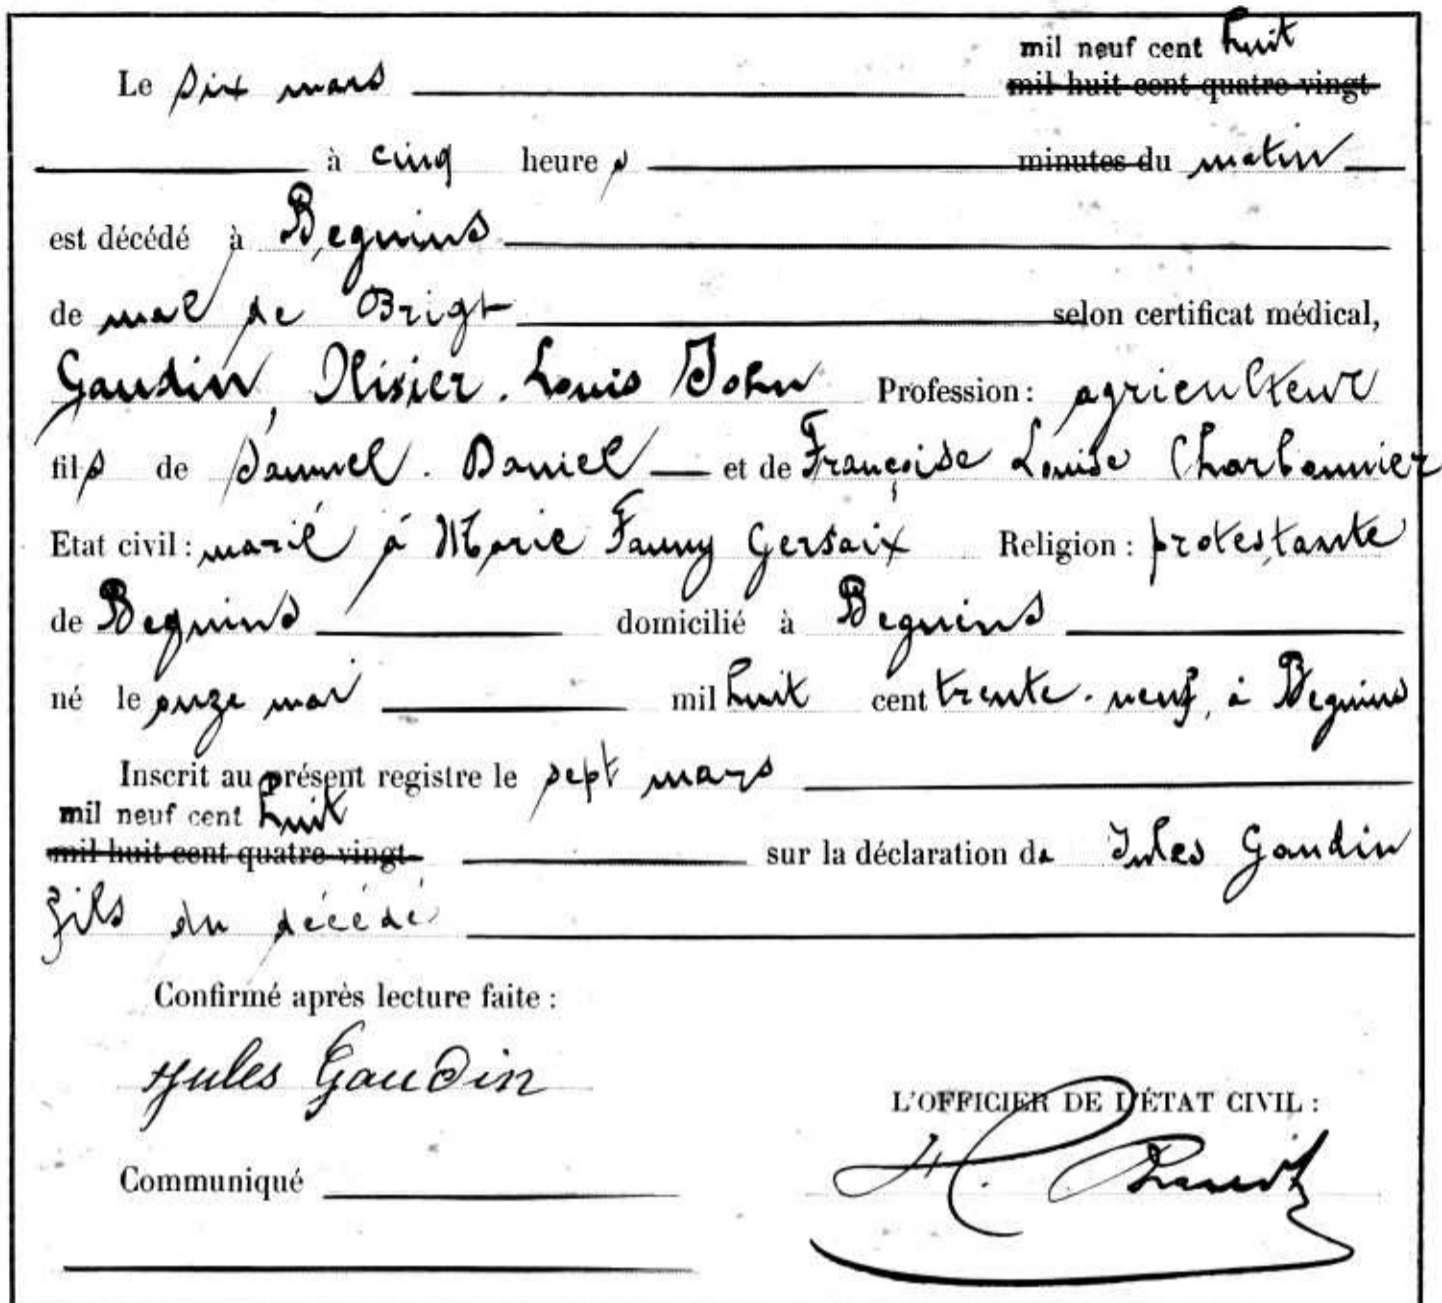 mil neuf cent huit
Le six mars mil huit cent quatre vingt
à cinq heures minutes du matin
est décédé à Begnins
de mal de Brigt selon certificat médical,
Gaudin, Olivier. Louis John Profession: agriculteur
fils de Samuel. Daniel et de Françoise Louise Charbonnier
Etat civil: marié à Marie Fanny Gersaix Religion: protestante
de Begnins domicilié à Begnins
né le onze mai mil huit cent trente-neuf, à Begnins
Inscrit au présent registre le sept mars
mil neuf cent huit
mil huit cent quatre vingt sur la déclaration de Jules Gaudin
fils du décédé
Confirmé après lecture faite:
Jules Gaudin
L'OFFICIER DE L'ÉTAT CIVIL:
Communiqué H.